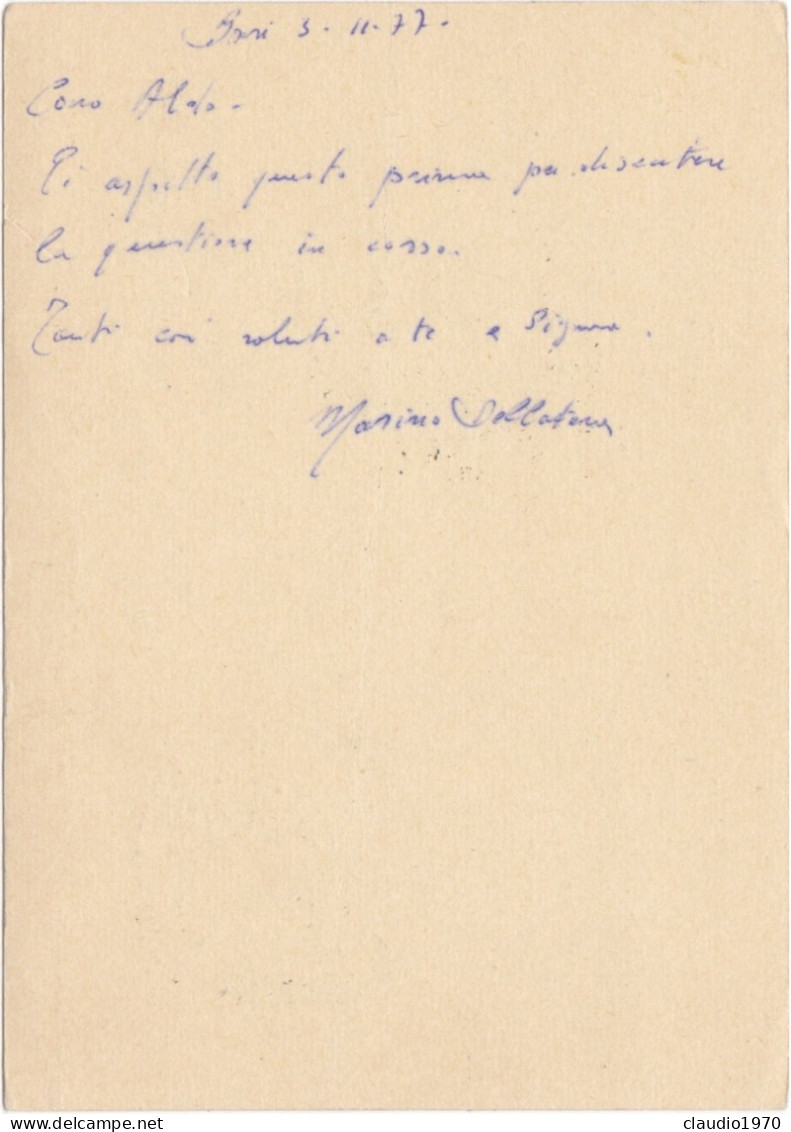 Bari 3-11-77-
Caro Aldo-
Ti aspetto quanto prima per discutere
la questione in corso.
Tanti cari saluti a te e Signora.
Marino
delcampe.net
claudio1970